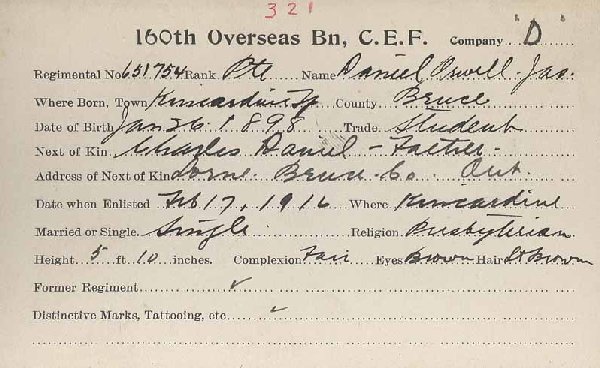 321
160th Overseas Bn, C.E.F. Company "D"
Regimental No 651754 Rank Pte Name Daniel Orvell Jas.
Where Born, Town Kincardine Tp County Bruce
Date of Birth Jan 26 1898 Trade Student
Next of Kin Charles Daniel - Father -
Address of Next of Kin Lorne Bruce Co Ont.
Date when Enlisted Feb 17, 1916 Where Kincardine
Married or Single Single Religion Presbyterian
Height 5 ft 10 inches. Complexion Fair Eyes Brown Hair Lt Brown
Former Regiment ✓
Distinctive Marks, Tattooing, etc ✓